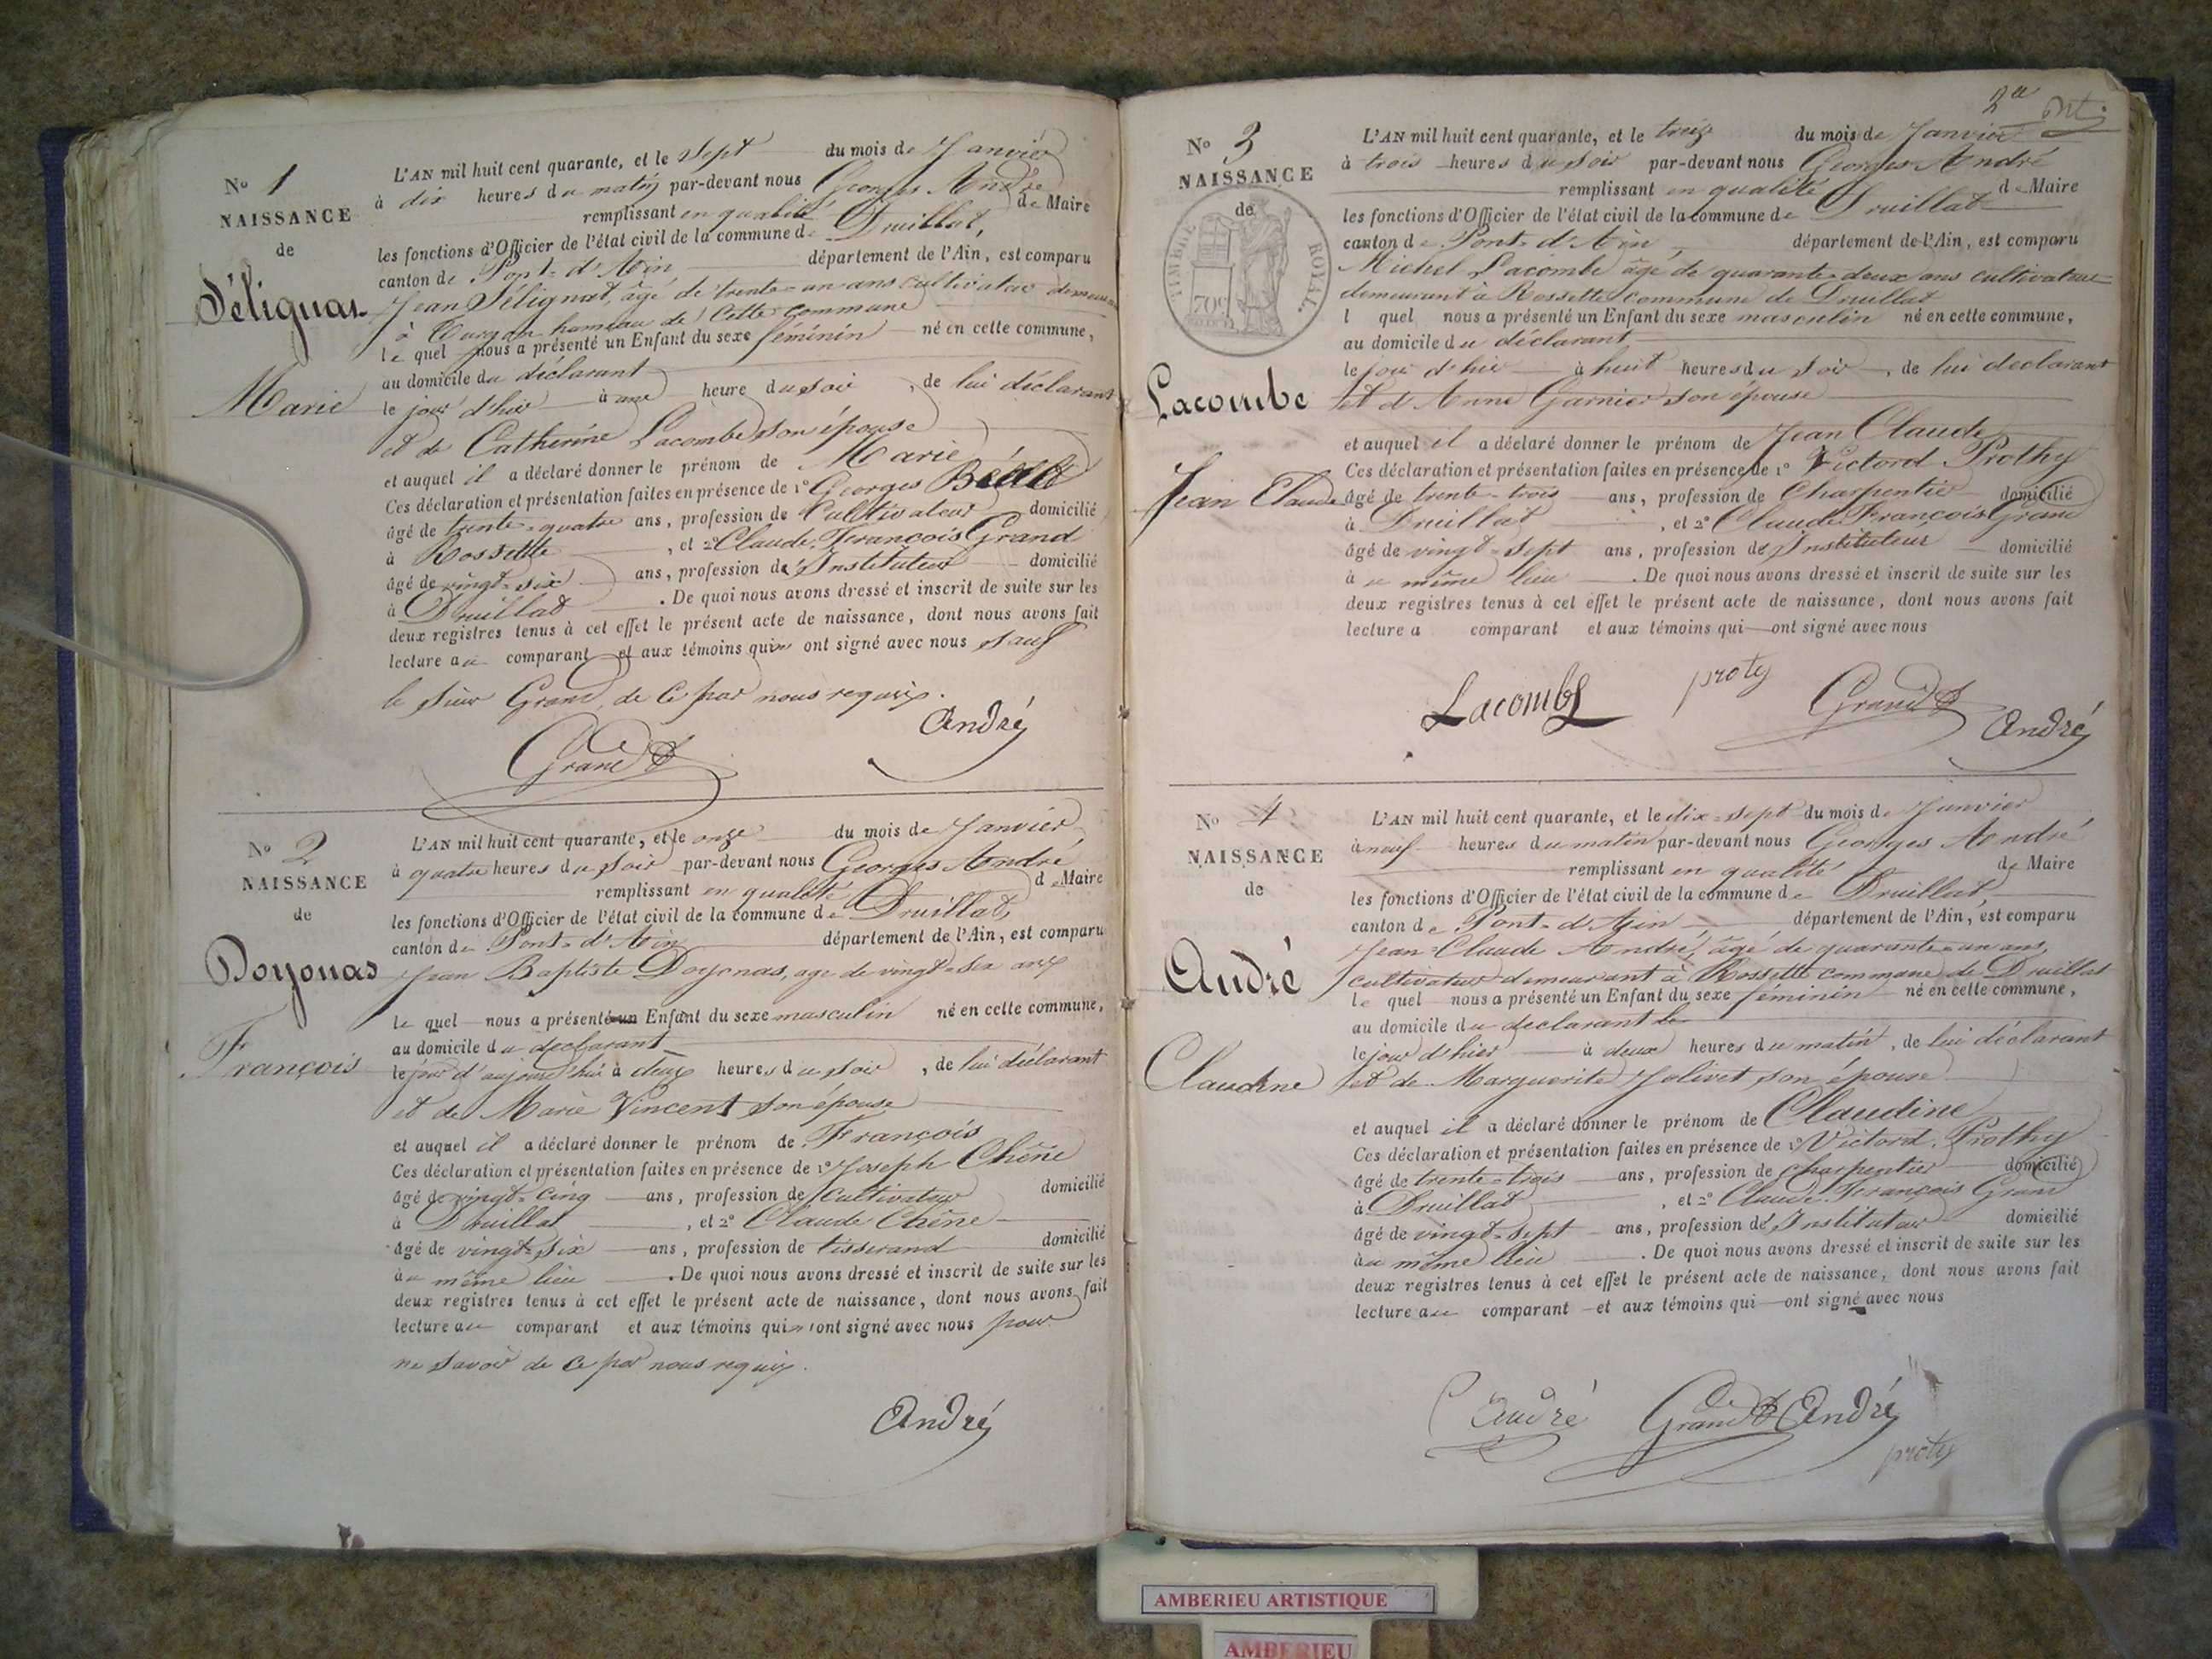 N° 1
NAISSANCE
de
Séliguat
Marie
L'AN mil huit cent quarante, et le sept du mois de Janvier
à dix heures du matin par-devant nous Georges André
remplissant en qualité de Maire
les fonctions d'Officier de l'état civil de la commune de Druillat,
canton de Pont-d'Ain département de l'Ain, est comparu
Jean Sélignat, âgé de trente-un ans cultivateur demeurant
à Turgon hameau de Cette commune
le quel nous a présenté un Enfant du sexe féminin né en cette commune,
au domicile du déclarant
le jour d'hier à une heure du soir, de lui déclarant
et de Catherine Lacombe son épouse
et auquel il a déclaré donner le prénom de Marie
Ces déclaration et présentation faites en présence de 1° Georges
âgé de trente-quatre ans, profession de Cultivateur domicilié
à Rossettte, et 2° Claude François Grand
âgé de vingt-six ans, profession d'Instituteur domicilié
à Druillat. De quoi nous avons dressé et inscrit de suite sur les
deux registres tenus à cet effet le présent acte de naissance, dont nous avons fait
lecture au comparant et aux témoins qui ont signé avec nous sauf
le sieur Grand, de ce par nous requis.
Grand
André
N° 2
NAISSANCE
de
Doyonas
François
L'AN mil huit cent quarante, et le onze du mois de Janvier
à quatre heures du soir par-devant nous Georges André
remplissant en qualité d Maire
les fonctions d'Officier de l'état civil de la commune de Druillat,
canton de Pont-d'Ain département de l'Ain, est comparu
Jean Baptiste Doyonas, age de vingt-six ans
le quel nous a présenté un Enfant du sexe masculin né en cette commune,
au domicile du declarant
le jour d'aujourd'hui à deux heures du soir, de lui déclarant
et de Marie Vincent son épouse
et auquel il a déclaré donner le prénom de François
Ces déclaration et présentation faites en présence de 1° Joseph Chêne
âgé de vingt-cinq ans, profession de Cultivateur domicilié
à Druillat, et 2° Claude Chêne
âgé de vingt-six ans, profession de tisserand domicilié
au même lieu. De quoi nous avons dressé et inscrit de suite sur les
deux registres tenus à cet effet le présent acte de naissance, dont nous avons fait
lecture au comparant et aux témoins qui ont signé avec nous pour
ne savoir de ce par nous requis.
André
2e
N° 3
NAISSANCE
de
TIMBRE ROYAL
70c
Lacombe
Jean Claude
L'AN mil huit cent quarante, et le treize du mois de Janvier
à trois heures du soir par-devant nous Georges André
remplissant en qualité de Maire
les fonctions d'Officier de l'état civil de la commune de Druillat
canton de Pont-d'Ain, département de l'Ain, est comparu
Michel Lacombe âgé de quarante-deux ans cultivateur
demeurant à Rossette commune de Druillat
l quel nous a présenté un Enfant du sexe masculin né en cette commune,
au domicile du déclarant
le jour d'hier à huit heures du soir, de lui declarant
et d'Anne Garnier son épouse
et auquel il a déclaré donner le prénom de Jean Claude
Ces déclaration et présentation faites en présence de 1° Victord Prothy
âgé de trente-trois ans, profession de Charpentier domicilié
à Druillat, et 2° Claude François Grand
âgé de vingt-sept ans, profession d'Instituteur domicilié
à u même lieu. De quoi nous avons dressé et inscrit de suite sur les
deux registres tenus à cet effet le présent acte de naissance, dont nous avons fait
lecture a comparant et aux témoins qui ont signé avec nous
Lacombe
proty
Grand
André
N° 4
NAISSANCE
de
André
Claudine
L'AN mil huit cent quarante, et le dix-sept du mois de Janvier
à neuf heures du matin par-devant nous Georges André
remplissant en qualité de Maire
les fonctions d'Officier de l'état civil de la commune de Druillat,
canton de Pont-d'Ain département de l'Ain, est comparu
Jean-Claude André, âgé de quarante-un ans,
cultivateur demeurant à Rossettte commune de Druillat
le quel nous a présenté un Enfant du sexe féminin né en cette commune,
au domicile du declarant le
le jour d'hier à deux heures du matin, de lui déclarant
et de Marguerite Jolivet son épouse
et auquel il a déclaré donner le prénom de Claudine
Ces déclaration et présentation faites en présence de 1° Victord Prothy
âgé de trente-trois ans, profession de Charpentier domicilié
à Druillat, et 2° Claude François Grand
âgé de vingt-sept ans, profession d'Instituteur domicilié
au même lieu. De quoi nous avons dressé et inscrit de suite sur les
deux registres tenus à cet effet le présent acte de naissance, dont nous avons fait
lecture au comparant et aux témoins qui ont signé avec nous
André
Grand
André
proty
AMBERIEU ARTISTIQUE
AMBERIEU